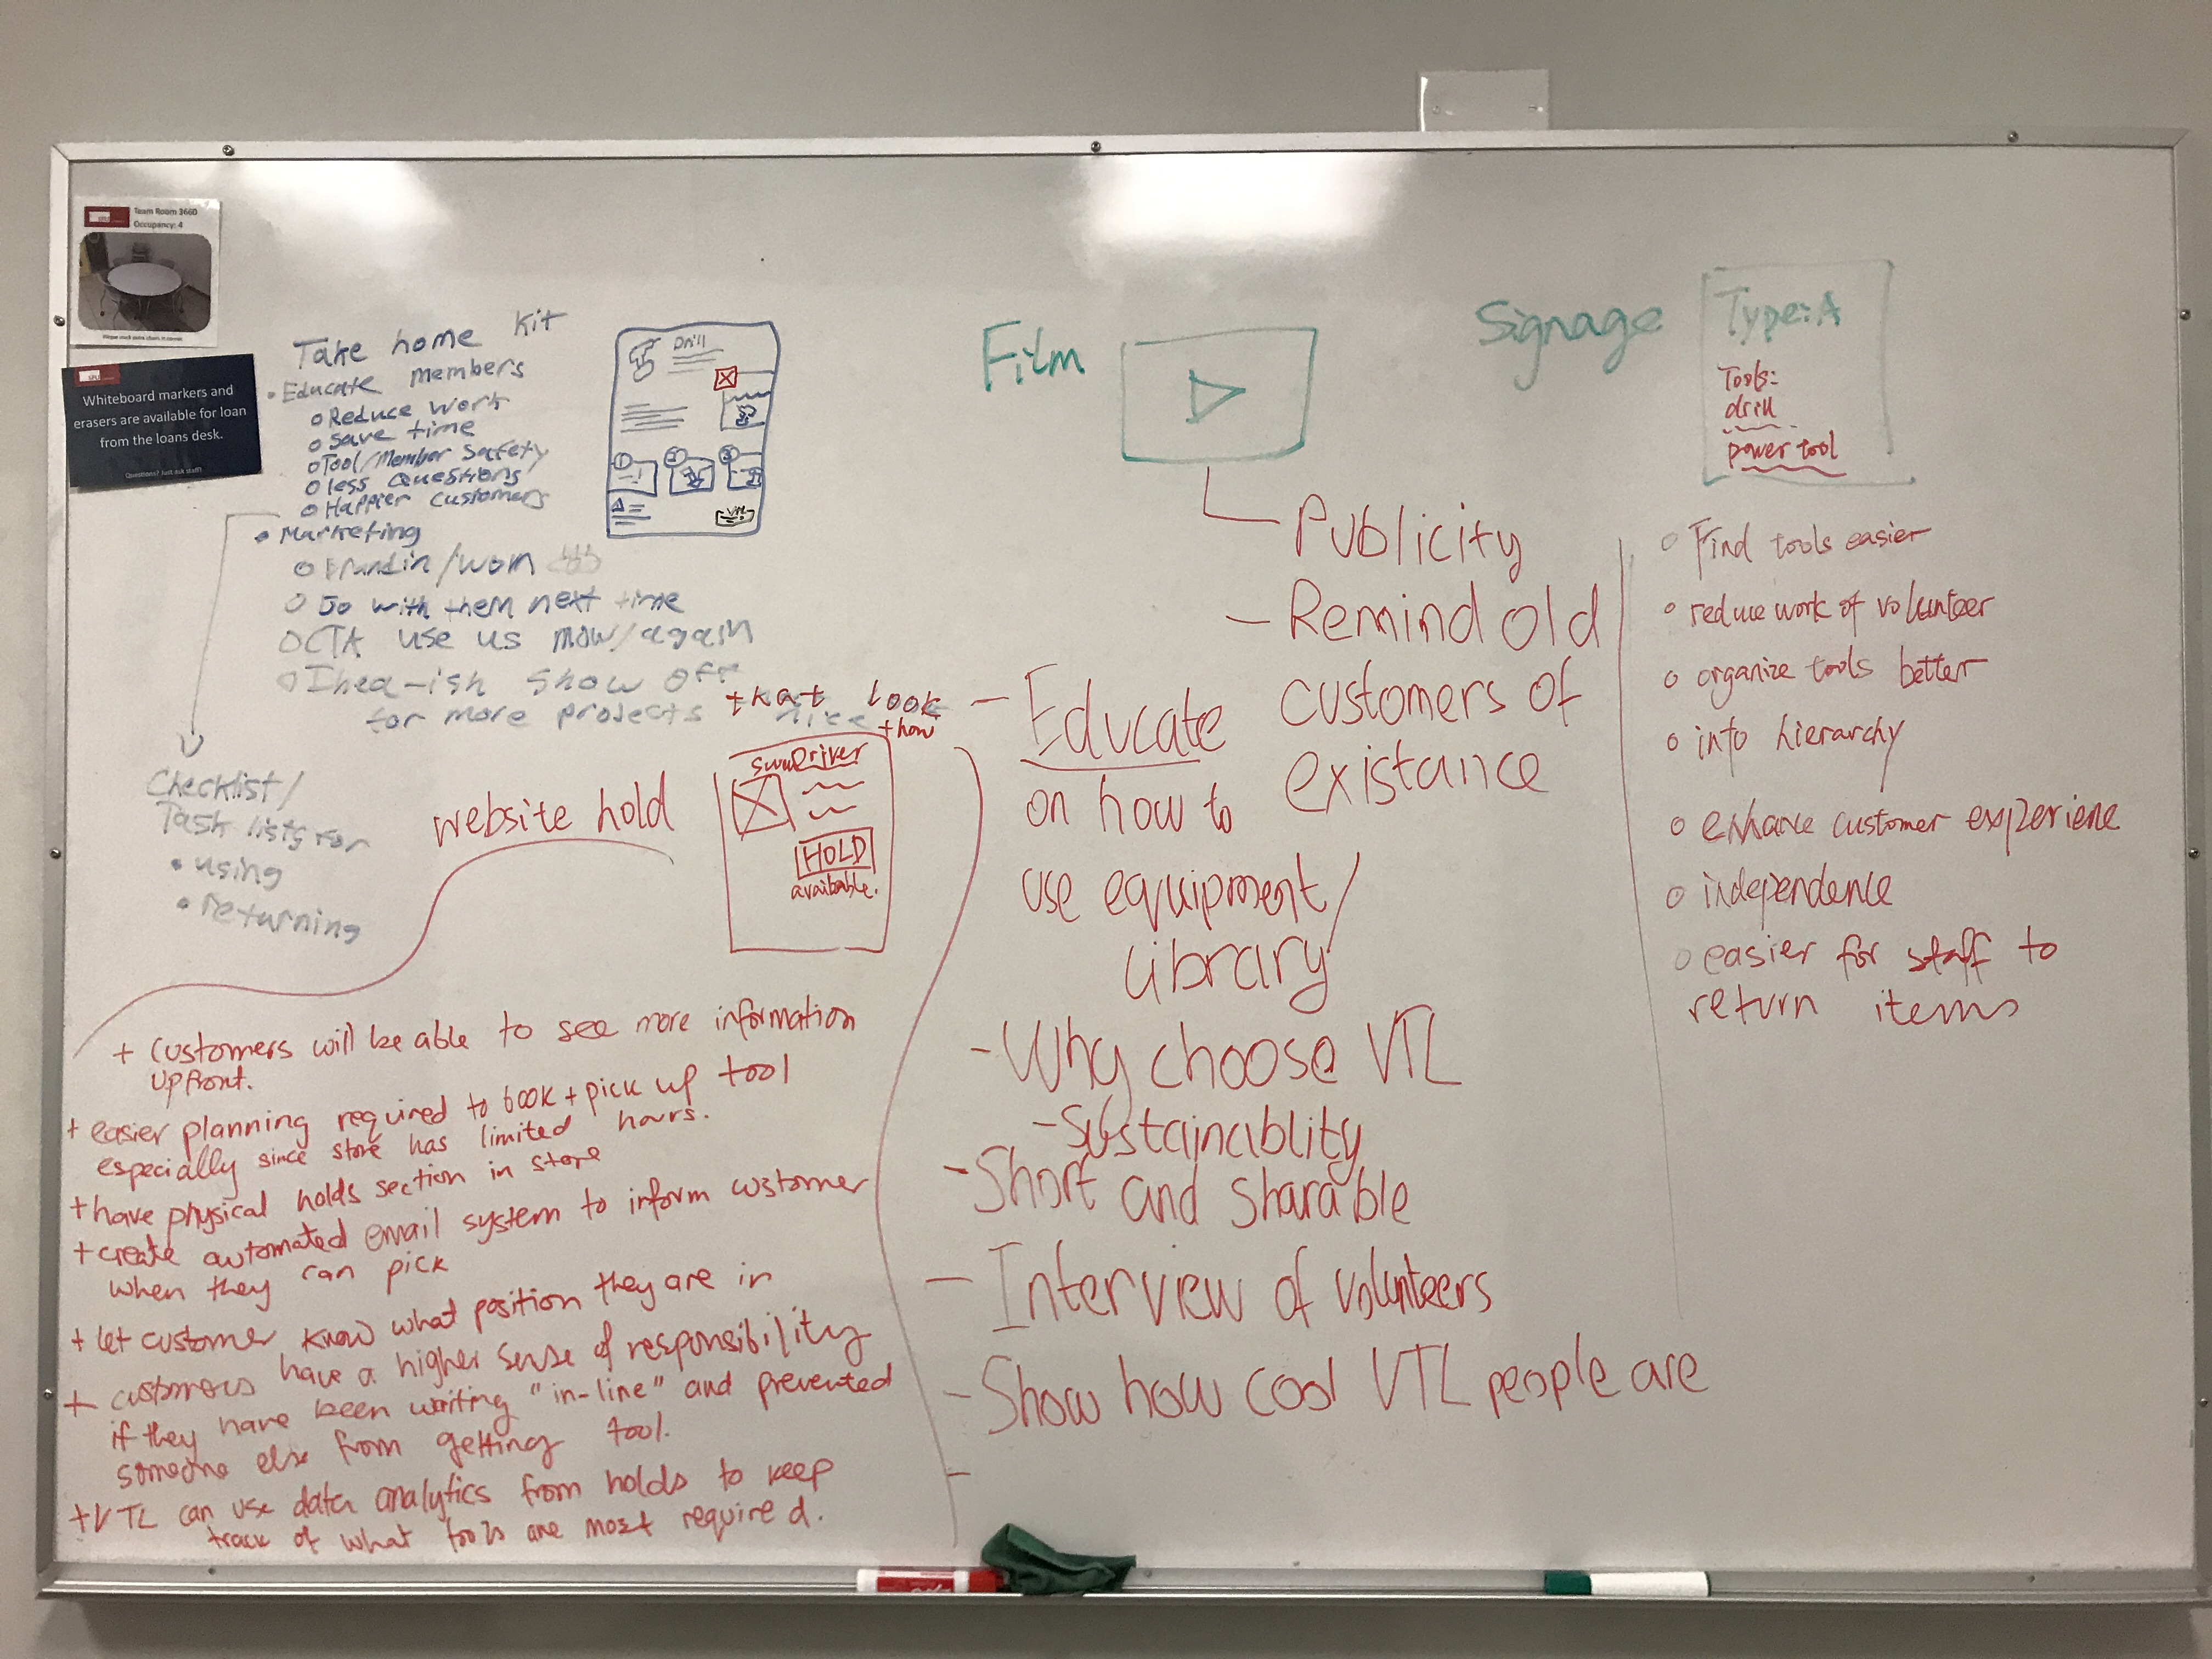 Team Room 3660
Occupancy: 4
SFU
Whiteboard markers and
erasers are available for loan
from the loans desk.
Questions? Just ask staff!
Take home kit
• Educate members
o Reduce work
o save time
o Tool/Member Safety
o less questions
o Happier customers
• Marketing
o Brandin/wom
o Go with them next time
o CTA use us now/again
o Ikea-ish show off
for more projects that look
nice
+ how
Checklist/
Task lists for
• using
• returning
Drill
1
2
3
website hold
HOLD
available.
+ Customers will be able to see more information
upfront.
+ easier planning required to book + pick up tool
especially since store has limited hours.
+ have physical holds section in store
+ create automated email system to inform customer
when they can pick
+ let customer know what position they are in
+ customers have a higher sense of responsibility
if they have been waiting "in-line" and prevented
someone else from getting tool.
+ VTL can use data analytics from holds to keep
track of what tools are most required.
Film
- Publicity
- Remind old
customers of
existance
- Educate
on how to
use equipment/
library
- Why choose VTL
- Sustainablity
- Short and sharable
- Interview of volunteers
- Show how cool VTL people are
-
Signage
Type: A
Tools:
drill
power tool
o Find tools easier
o reduce work of volunteer
o organize tools better
o into hierarchy
o enhance customer experiene
o independence
o easier for staff to
return items